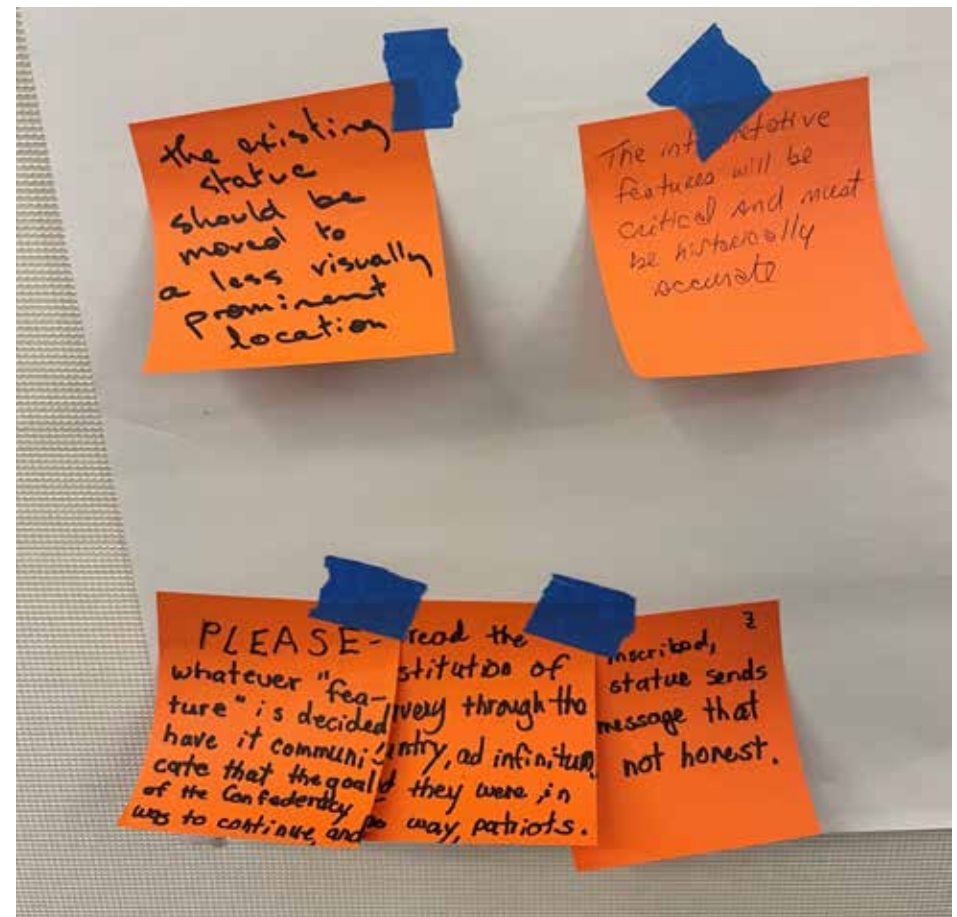 the existing
statue
should be
moved to
a less visually
prominent
location
The
features will be
critical and must
be historically
accurate
PLEASE-
whatever "fea-
ture" is decided,
have it communi
cate that the goal
of the Confederacy
was to continue, and
read the
stitution of
very through the
ntry, ad infinitum.
they were, in
way, patriots.
3
inscribed,
statue sends
message that
not honest.